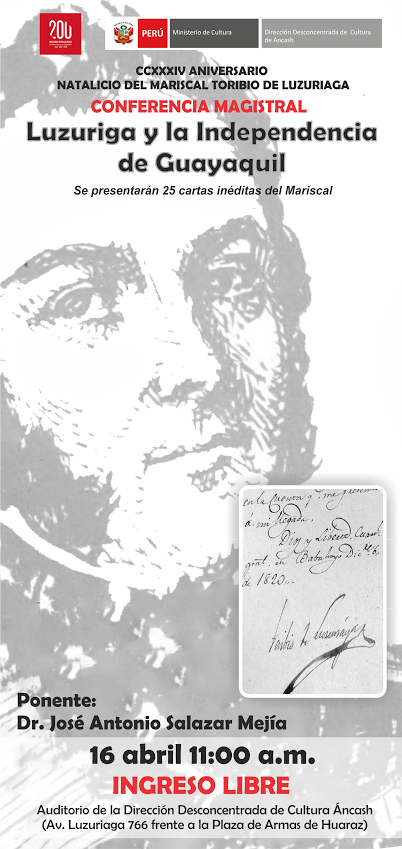 200
PERÚ
Ministerio de Cultura
Dirección Desconcentrada de Cultura
de Ancash
CCXXXIV ANIVERSARIO
NATALICIO DEL MARISCAL TORIBIO DE LUZURIAGA
CONFERENCIA MAGISTRAL
Luzuriga y la Independencia
de Guayaquil
Se presentarán 25 cartas inéditas del Mariscal
en la Cuenta q.e me
á mi llegada.
Dios y Libertad. Cuart.
gral. en Babahoyo Dic.re 6
de 1820.
Toribio de Luzuriaga
Ponente:
Dr. José Antonio Salazar Mejía
16 abril 11:00 a.m.
INGRESO LIBRE
Auditorio de la Dirección Desconcentrada de Cultura Áncash
(Av. Luzuriaga 766 frente a la Plaza de Armas de Huaraz)